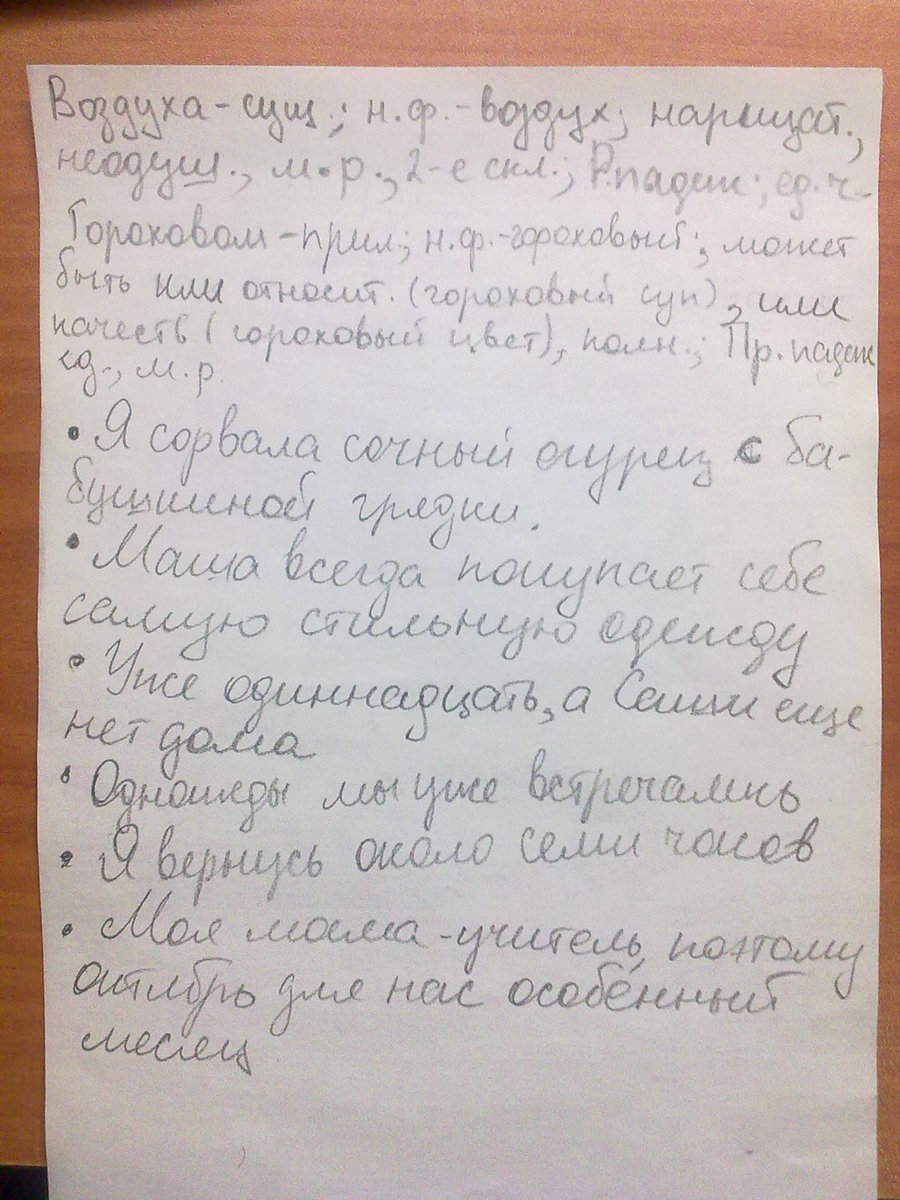 Воздуха-сущ.; н.ф.-воздух; нарицат.,
неодуш., м.р., 2-е скл.; Р.падеж; ед.ч.
Гороховом-прил; н.ф.-гороховый; может
быть или относит. (гороховый суп), или
качеств (гороховый цвет), полн.; Пр.падеж
ед., м.р.
• Я сорвала сочный огурец с ба-
бушкиной грядки.
• Маша всегда покупает себе
самую стильную одежду
• Уже одиннадцать, а Сашки еще
нет дома
• Однажды мы уже встречались
• Я вернусь около семи часов
• Моя мама-учитель, поэтому
октябрь для нас особенный
месяц